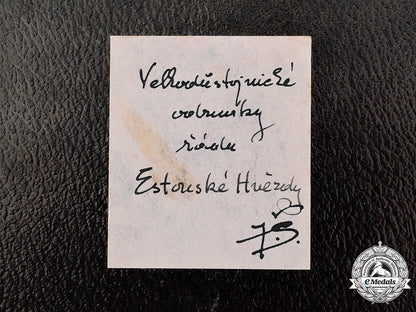 Velkodůstojnické
odznaky
řádu
Estonské Hvězdy
J.S.
eMedals